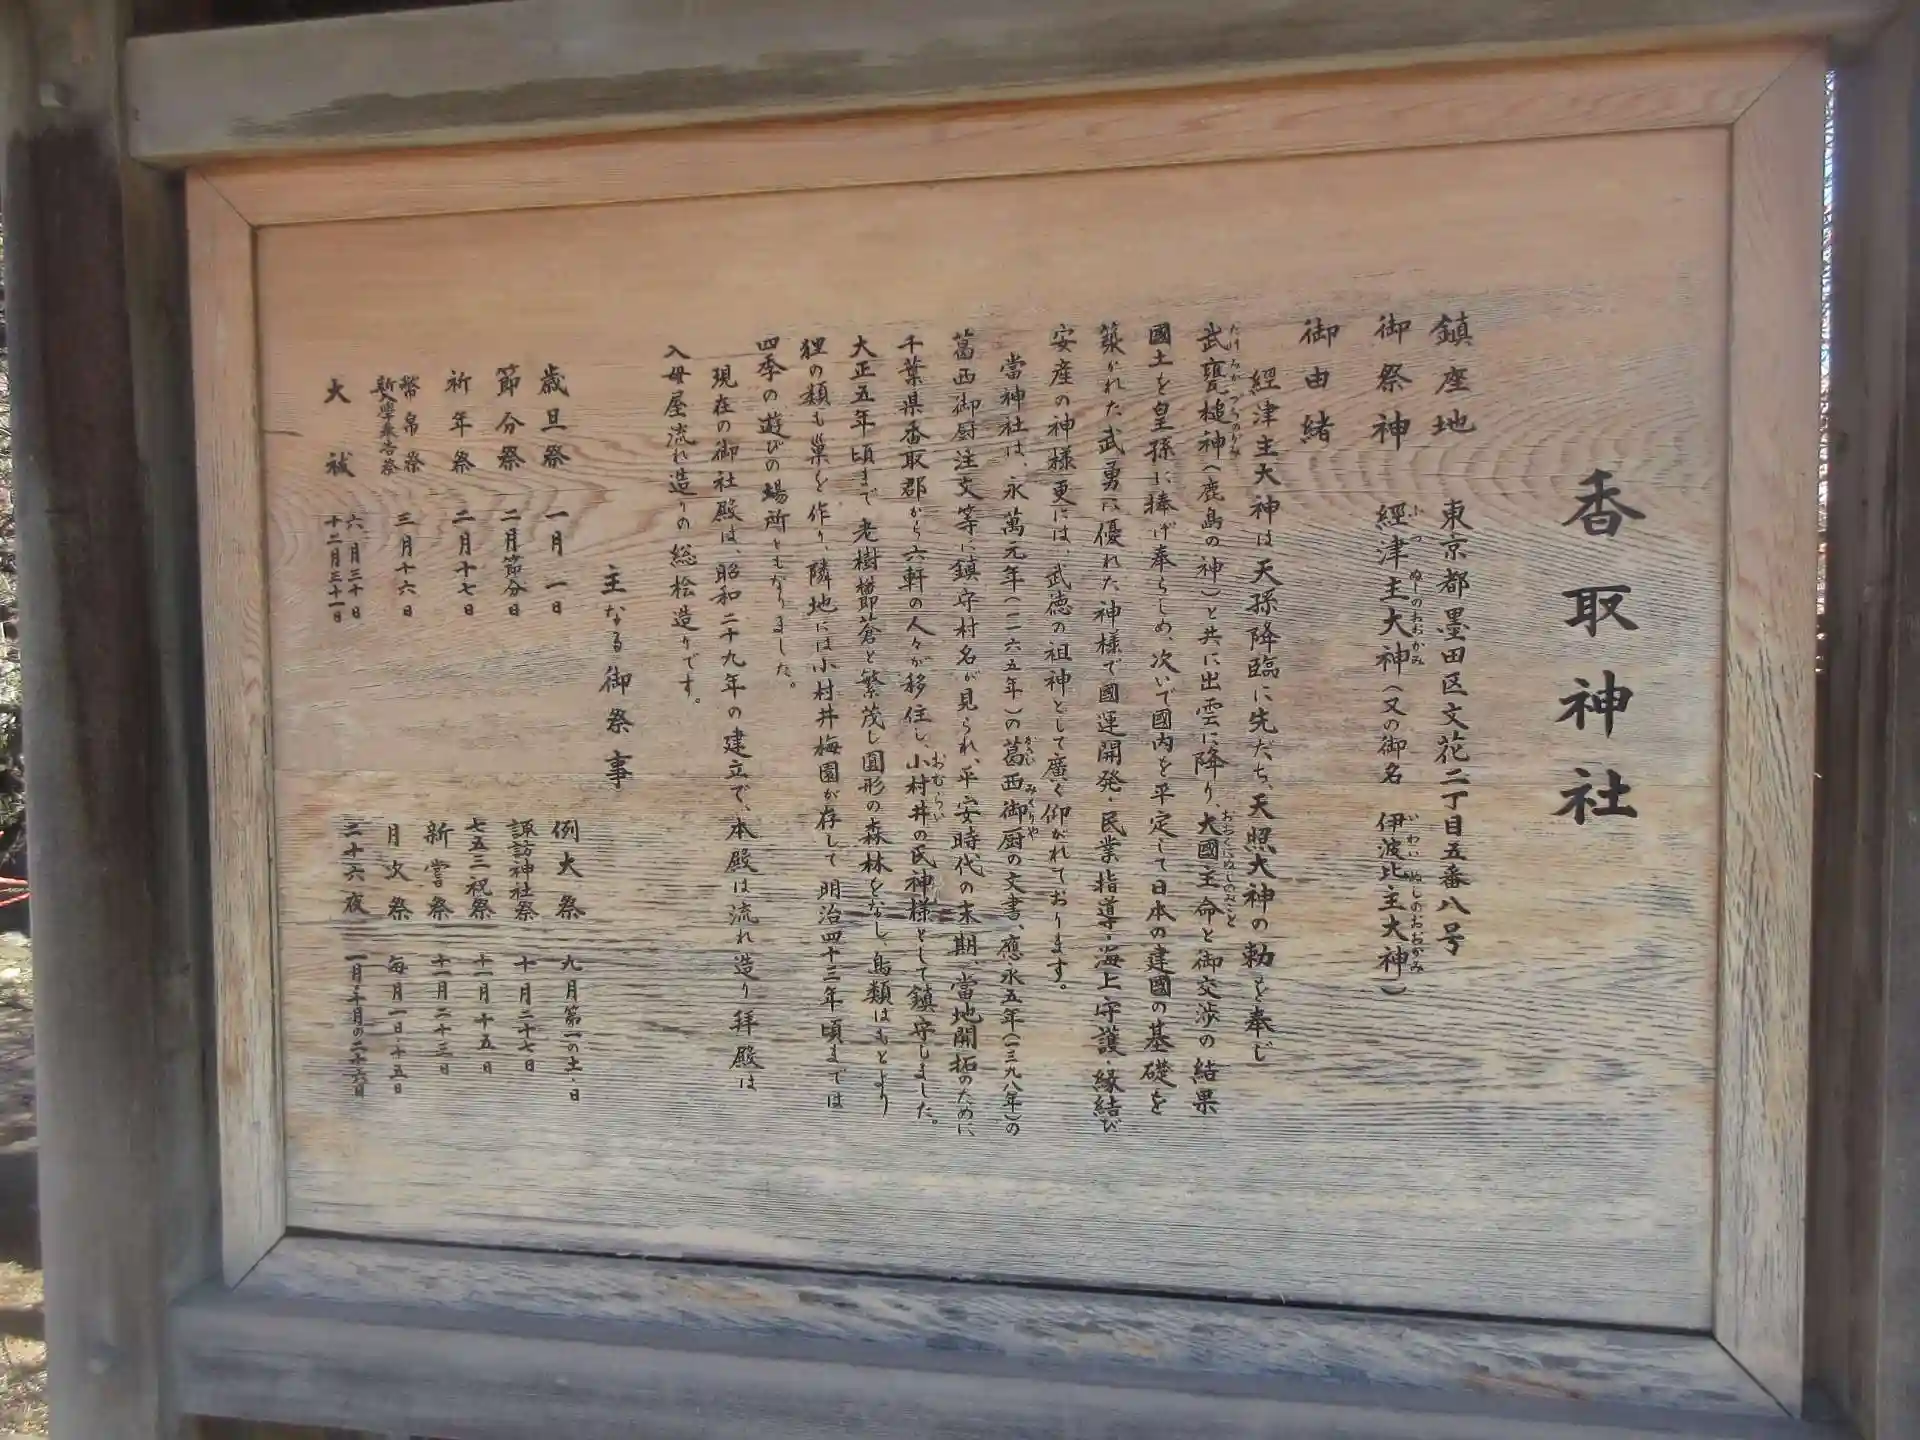 香取神社
鎮座地　東京都墨田区文花二丁目五番八号
御祭神　經津主大神（又の御名　伊波比主大神）
御由緒
經津主大神は天孫降臨に先だち、天照大神の勅を奉じ
武甕槌神（鹿島の神）と共に出雲に降り、大國主命と御交渉の結果
國土を皇孫に捧げ奉らしめ、次いで國内を平定して日本の建國の基礎を
築かれた武勇に優れた神様で國運開発・民業指導・海上守護・縁結び
安産の神様更には、武徳の祖神として廣く仰がれております。
當神社は、永萬元年（一一六五年）の葛西御厨の文書、應永五年（一三九八年）の
葛西御厨注文等に鎮守村名が見られ、平安時代の末期、當地開拓のために
千葉県香取郡から六軒の人々が移住し、小村井の氏神様として鎮守しました。
大正五年頃まで老樹櫛蒼と繁茂し圓形の森林をなし、鳥類はもとより
狸の類も巣を作り、隣地には小村井梅園が存して明治四十三年頃までは
四季の遊びの場所ともなりました。
現在の御社殿は、昭和二十九年の建立で、本殿は流れ造り拝殿は
入母屋流れ造りの総桧造りです。
主なる御祭事
歳旦祭　一月一日
節分祭　二月節分日
祈年祭　二月十七日
幣帛祭
新入學奉告祭　三月十六日
大祓　六月三十日
十二月三十一日
例大祭　九月第一の土・日
諏訪神社祭　十月二十七日
七五三祝祭　十一月十五日
新嘗祭　十一月二十三日
月次祭　毎月一日・十五日
二十六夜　一月・七月の二十六日